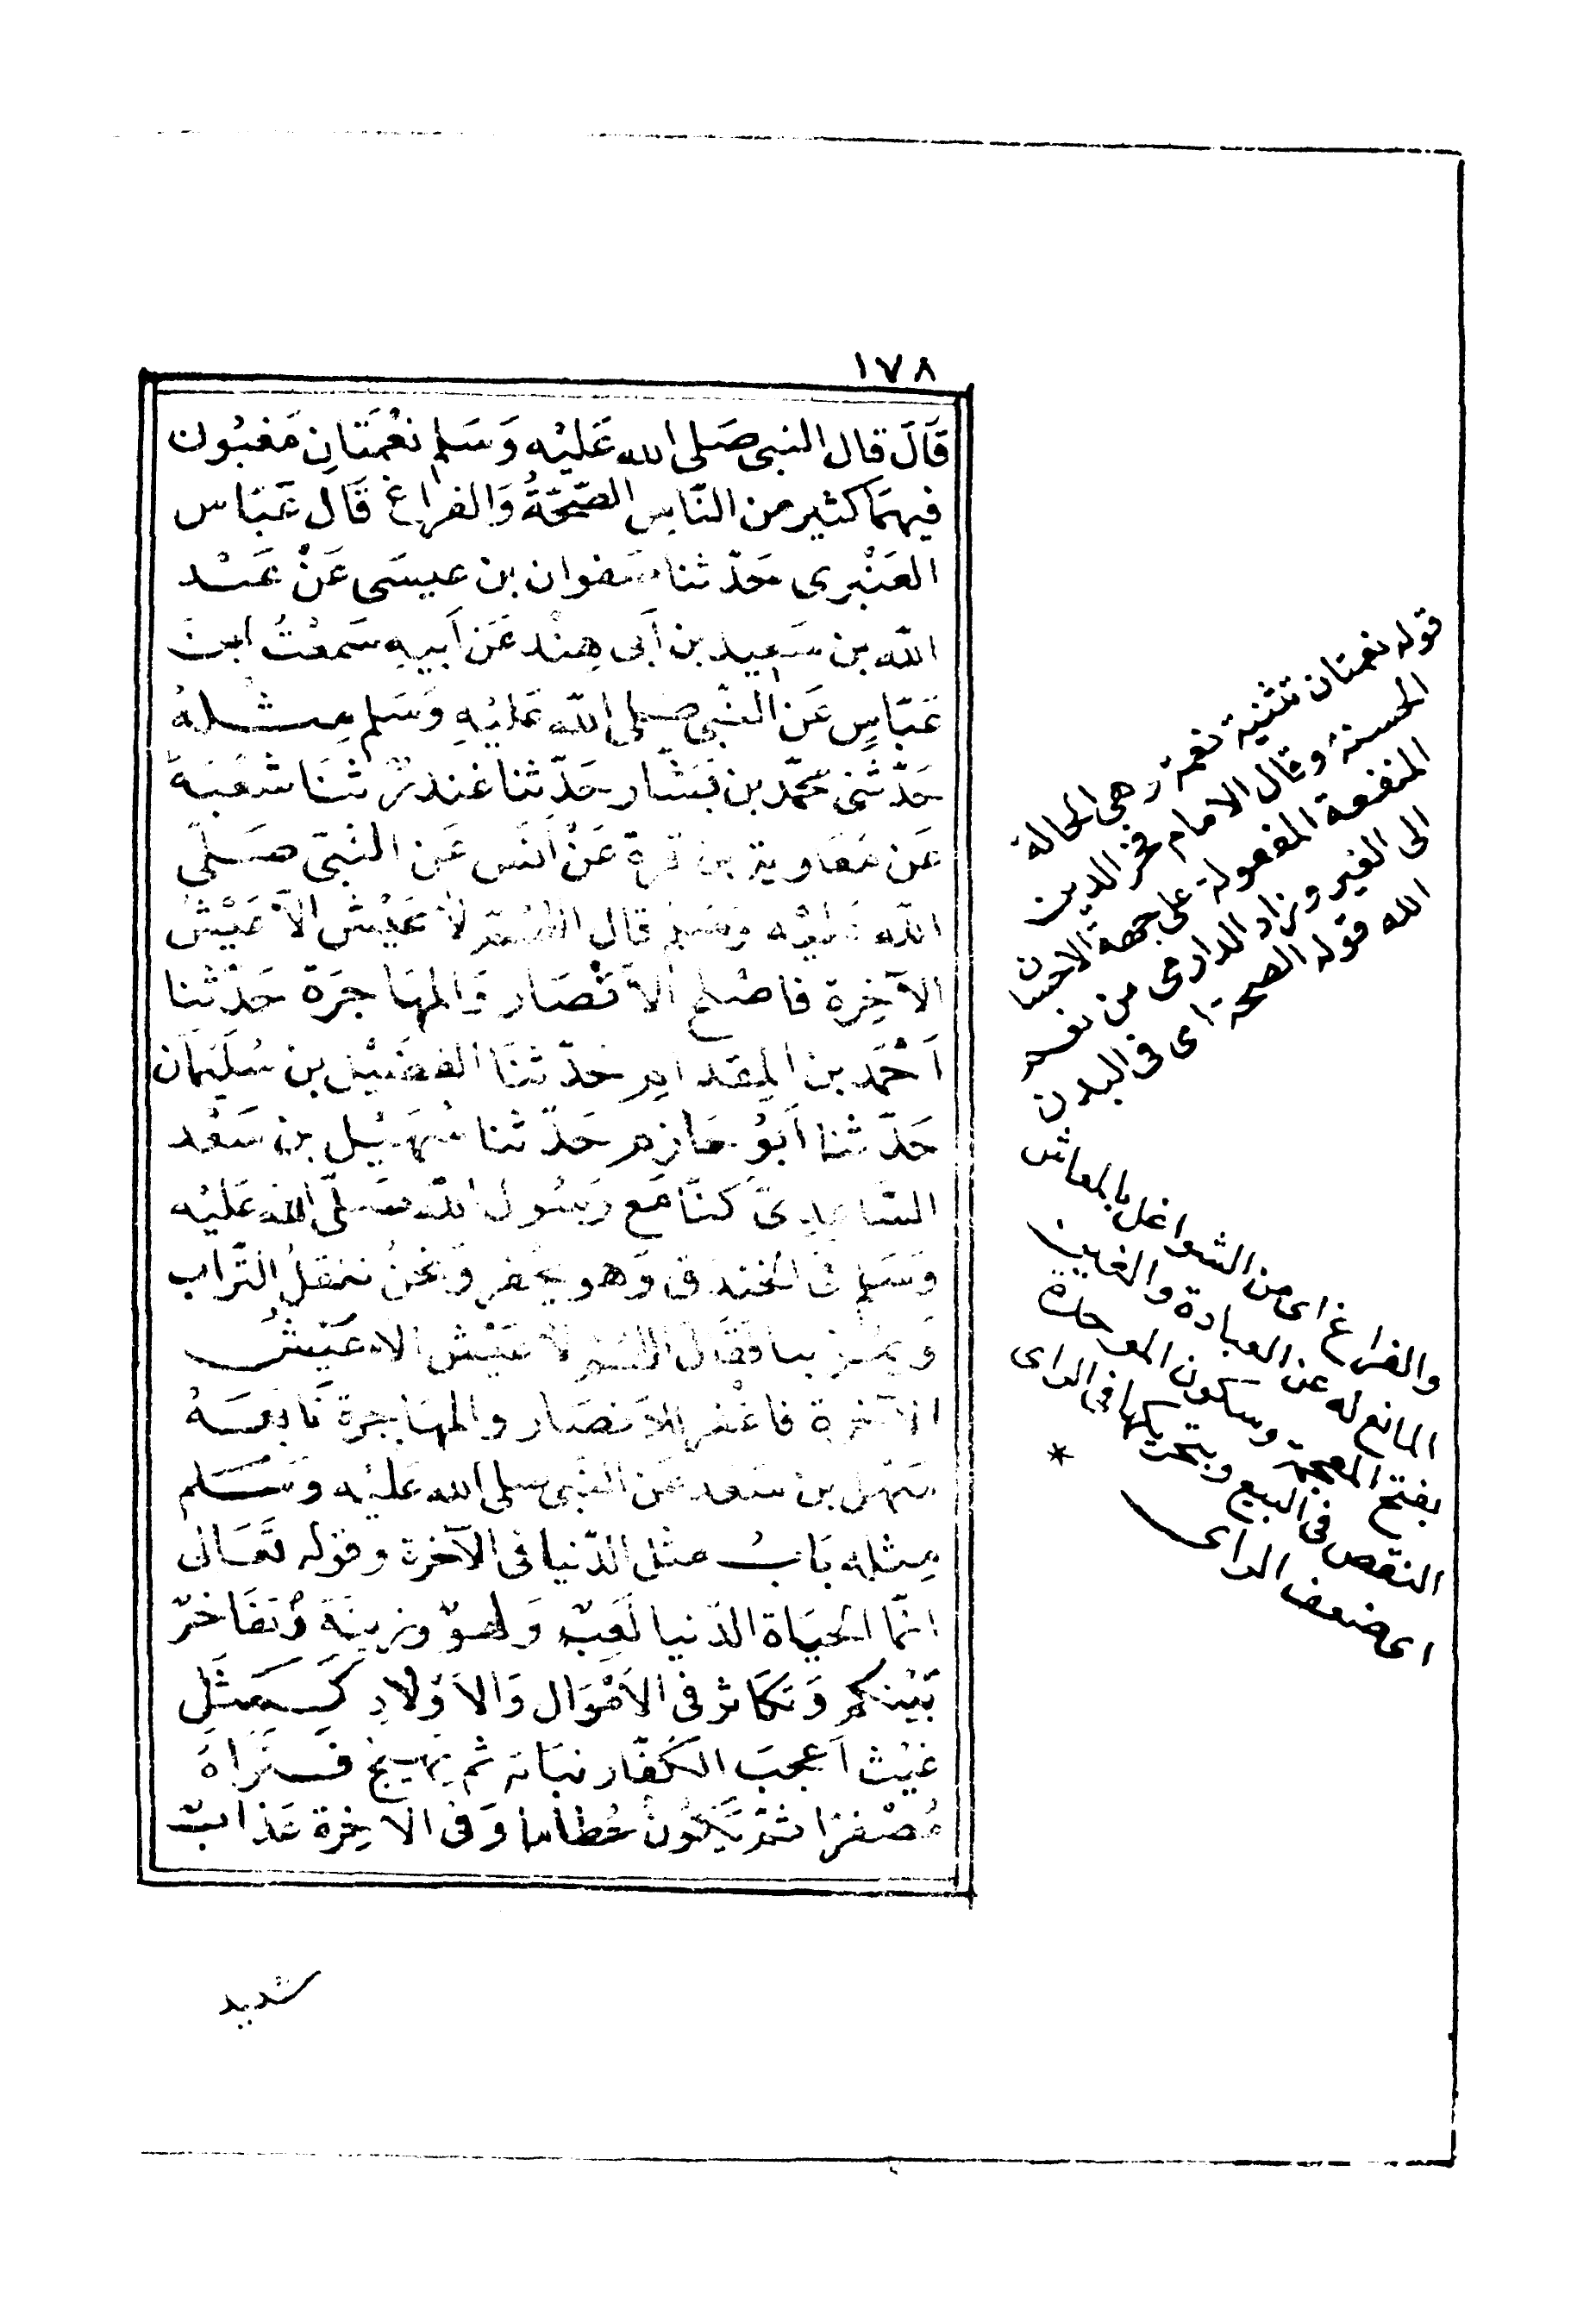 ١٧٨
قَالَ قال النبى صَلى الله عَليْه وَسَلم نعْمَتَانِ مَغبُون
فيهمَا كثير من النَّاس الصّحَّةُ وَالفراغ قَالَ عَبّاس
العَنْبرى حَدّثنا صَفوان بن عيسَى عَنْ عَبْد
الله بن سَعِيد بن أبى هِنْد عَن أبيهِ سَمعْتُ ابنَ
عَبّاسٍ عَن النَّبى صَلى الله عَليْهِ وَسَلم مِثْلهُ
حَدّثنى محمّد بن بَشّار حَدّثنا غندرٌ ثنَا شعْبَة
عَن مُعَاوية بن قرة عَنْ أنَس عَن النَّبى صَلّى
الله عَليْه وَسَلم قال اللهُمّ لاَ عَيْش الاّ عَيْشُ
الآخِرة فاصْلح الأنْصَار وَالمهَاجرَة حَدّثنا
أحْمَد بن المقدام حَدّثنَا الفضَيْل بن سُليْمان
حَدّثنا أبُو حَازم حَدّثنا سُهَيْل بن سَعْد
السَّاعِدِىّ كنّا مَع رَسُول الله صَلّى الله عَليْه
وَسَلم فى الخندق وَهو يحفر وَنحْنُ ننقلُ التّراب
وَيمُرّ بنا فقَالَ اللهُمّ لاَ عَيْش الاّ عَيْشُ
الآخرة فاغْفر للأنصَار والمهَاجرة تَابعَهُ
سَهْل بن سَعد عَن النَّبى صلى الله عَليْه وَسَلم
مِثله بَابُ مثل الدّنيا فى الآخرة وقوله تعَالى
انّما الحيَاة الدّنيا لَعِبٌ وَلهوٌ وزينَة وَتفَاخرٌ
بَيْنكم وَتكاثر فى الأمْوَال وَالأوْلادِ كَمَثَلِ
غيْث أعجبَ الكفّار نباته ثم يَهيجُ فَتَرَاهُ
مُصْفرًا ثمّ يَكُونُ حُطاما وَفى الآخِرة عَذابٌ
شديد
قوله نعمتان تثنية نعمة وهى الحالة
الحسنة وقال الامام فخر الدين
المنفعة المفعولة على جهة الاحسان
الى الغير وزاد الدارمى من نعم
الله قوله الصحة اى فى البدن
والفراغ اى من الشواغل بالمعاش
المانع له عن العبادة والغبن
بفتح المعجمة وسكون الموحدة
النقص فى البيع وبتحريكها فى الراى
اى ضعف الراى *